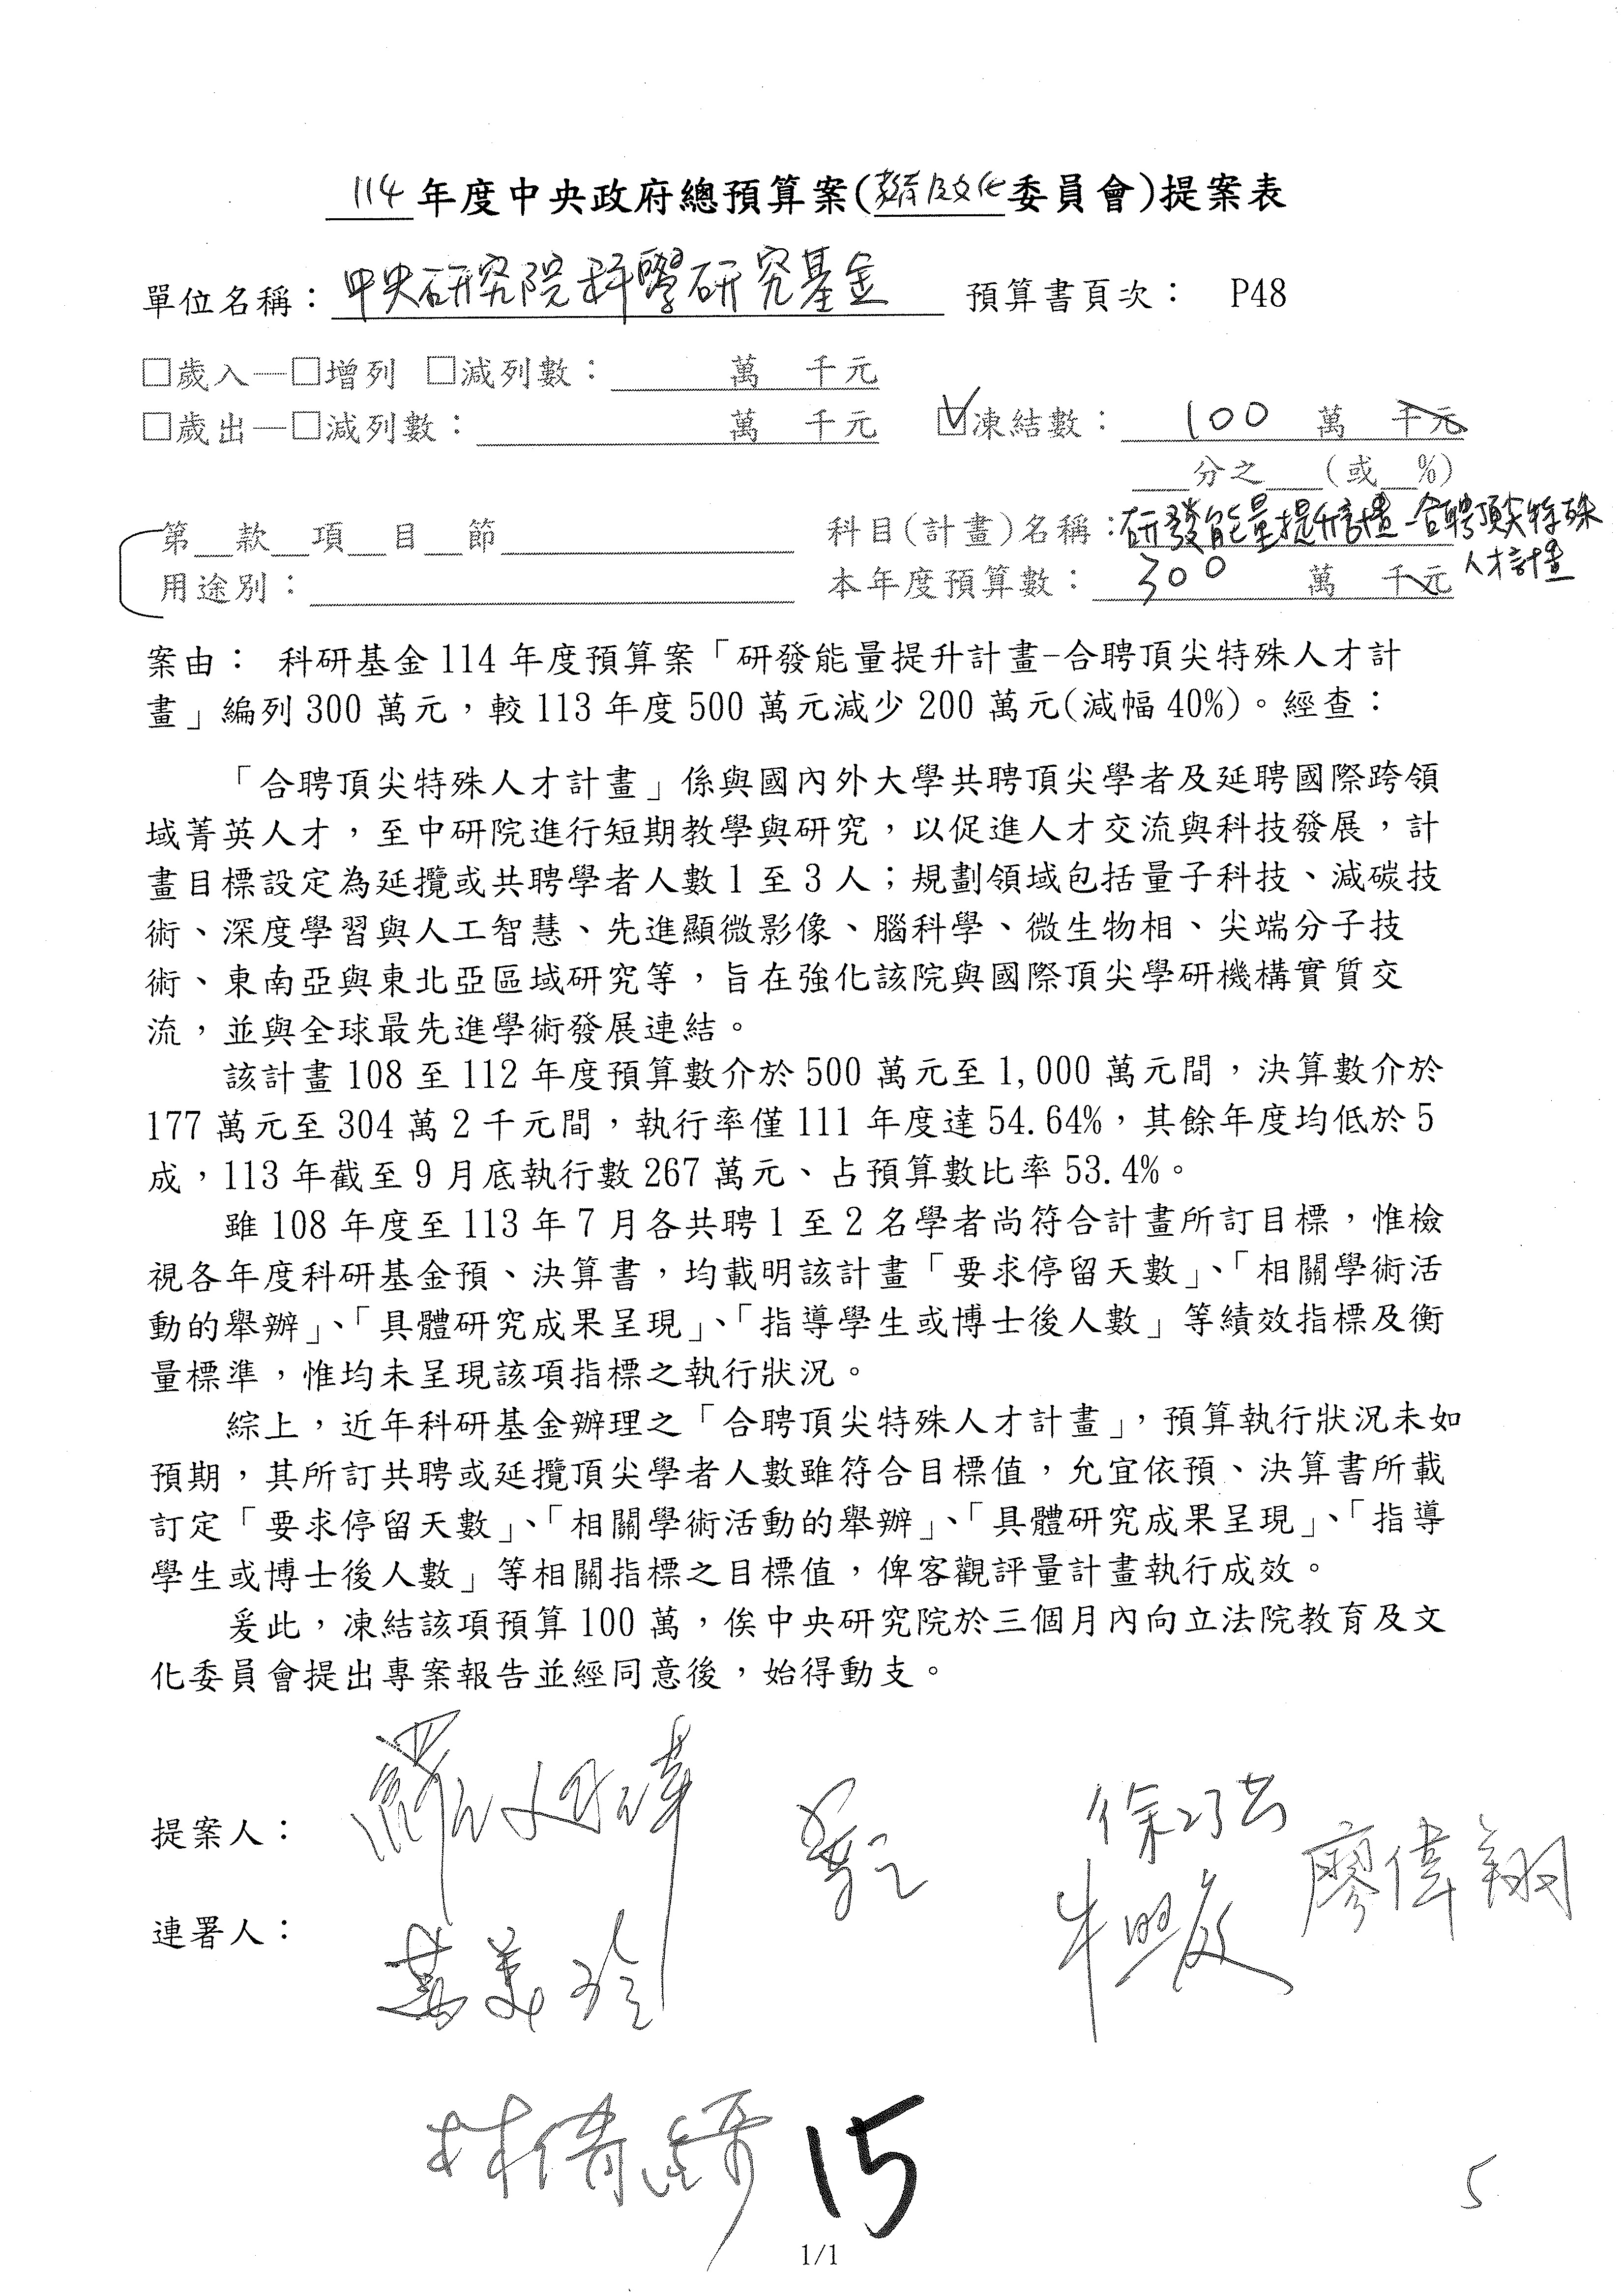 114年度中央政府總預算案(教育及文化委員會)提案表
單位名稱：中央研究院科學研究基金 預算書頁次： P48
□歲入—□增列 □減列數： 萬 千元
□歲出—□減列數： 萬 千元 ☑凍結數： 100 萬 千元
分之 (或 %)
第 款 項 目 節 科目(計畫)名稱：研發能量提升計畫-合聘頂尖特殊
人才計畫
用途別： 本年度預算數： 300 萬 千元
案由： 科研基金114年度預算案「研發能量提升計畫-合聘頂尖特殊人才計
畫」編列300萬元，較113年度500萬元減少200萬元(減幅40%)。經查：
「合聘頂尖特殊人才計畫」係與國內外大學共聘頂尖學者及延聘國際跨領
域菁英人才，至中研院進行短期教學與研究，以促進人才交流與科技發展，計
畫目標設定為延攬或共聘學者人數1至3人；規劃領域包括量子科技、減碳技
術、深度學習與人工智慧、先進顯微影像、腦科學、微生物相、尖端分子技
術、東南亞與東北亞區域研究等，旨在強化該院與國際頂尖學研機構實質交
流，並與全球最先進學術發展連結。
該計畫108至112年度預算數介於500萬元至1,000萬元間，決算數介於
177萬元至304萬2千元間，執行率僅111年度達54.64%，其餘年度均低於5
成，113年截至9月底執行數267萬元、占預算數比率53.4%。
雖108年度至113年7月各共聘1至2名學者尚符合計畫所訂目標，惟檢
視各年度科研基金預、決算書，均載明該計畫「要求停留天數」、「相關學術活
動的舉辦」、「具體研究成果呈現」、「指導學生或博士後人數」等績效指標及衡
量標準，惟均未呈現該項指標之執行狀況。
綜上，近年科研基金辦理之「合聘頂尖特殊人才計畫」，預算執行狀況未如
預期，其所訂共聘或延攬頂尖學者人數雖符合目標值，允宜依預、決算書所載
訂定「要求停留天數」、「相關學術活動的舉辦」、「具體研究成果呈現」、「指導
學生或博士後人數」等相關指標之目標值，俾客觀評量計畫執行成效。
爰此，凍結該項預算100萬，俟中央研究院於三個月內向立法院教育及文
化委員會提出專案報告並經同意後，始得動支。
提案人：
廖偉翔
連署人：
葛美玲
林倩綺
15
5
1/1